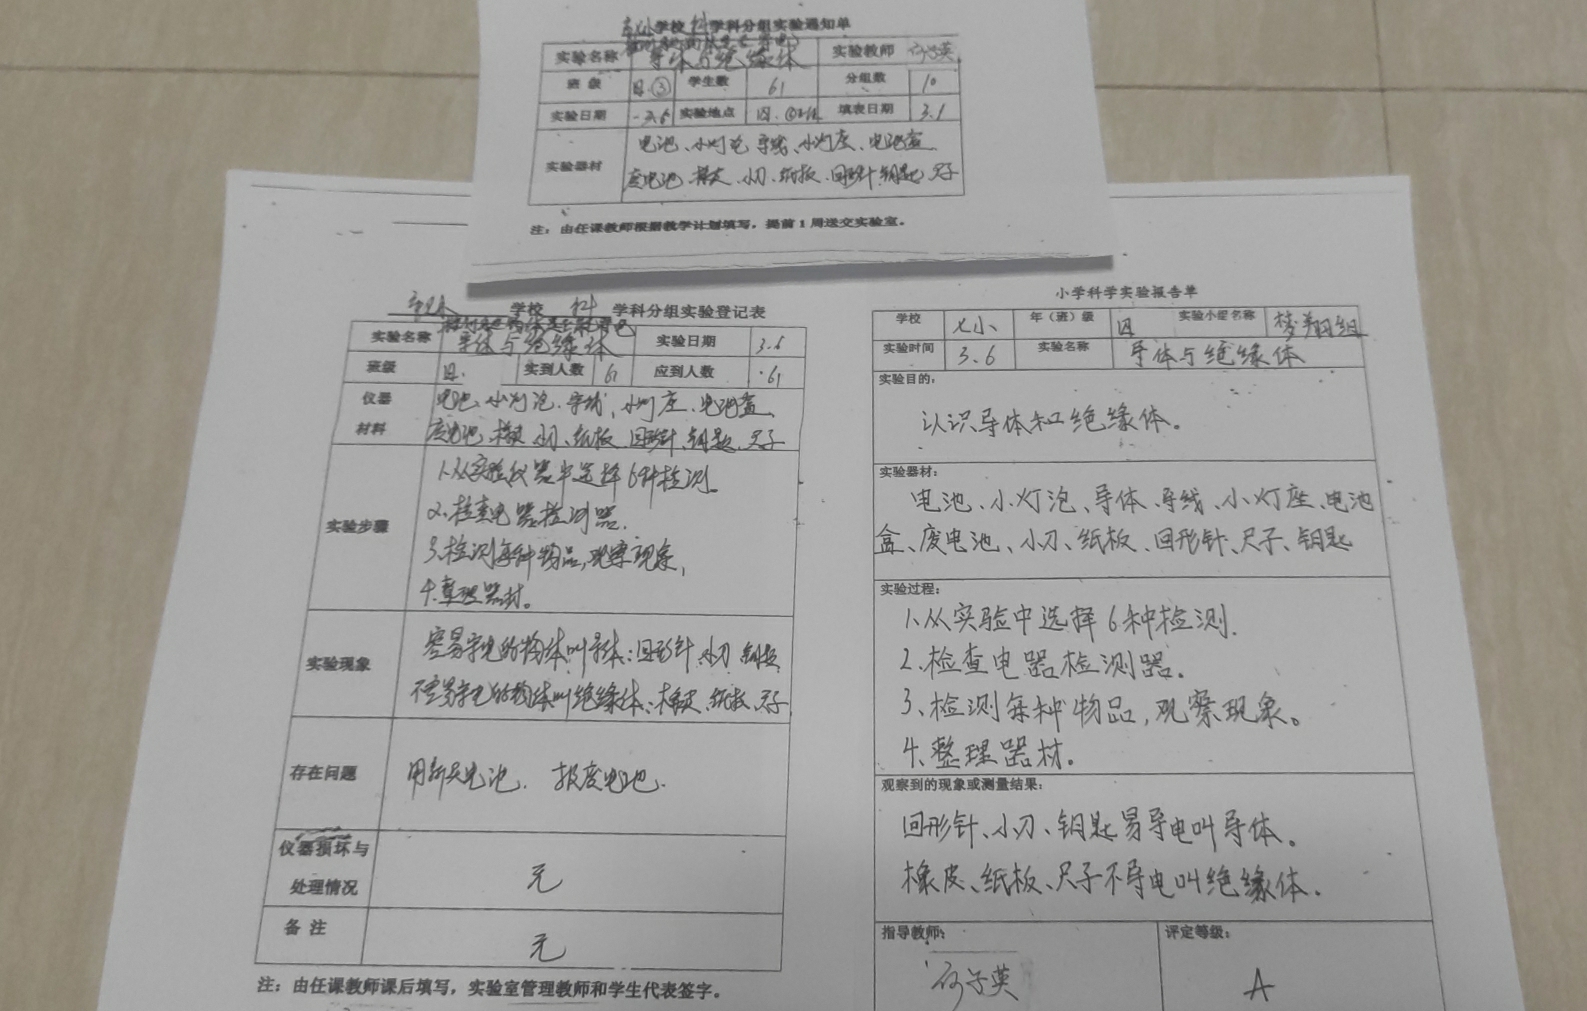 学校 科 学科分组实验通知单
实验名称 导体与绝缘体 实验教师
班级 四.③ 学生数 61 分组数 10
实验日期 3.6 实验地点 四. 填表日期 3.1
实验器材 电池、小灯泡、导线、小灯座、电池盒、
废电池、橡皮、小刀、纸板、回形针、钥匙、尺子
注：由任课教师根据教学计划填写，提前1周送交实验室。
学校 科 学科分组实验登记表
实验名称 导体与绝缘体 实验日期 3.6
班级 四. 实到人数 61 应到人数 61
仪器 电池、小灯泡、导线、小灯座、电池盒、
材料 废电池、橡皮、小刀、纸板、回形针、钥匙、尺子
实验步骤 1.从实验仪器中选择6种检测。
2.检查电器检测器.
3.检测每种物品,观察现象,
4.整理器材。
实验现象 容易导电的物体叫导体:回形针、小刀、钥匙
不容易导电的物体叫绝缘体:橡皮、纸板、尺子
存在问题 电池. 报废电池.
仪器损坏与
处理情况 无
备注 无
注：由任课教师课后填写，实验室管理教师和学生代表签字。
小学科学实验报告单
学校 七小 年（班）级 四 实验小组名称
实验时间 3.6 实验名称 导体与绝缘体
实验目的：
认识导体和绝缘体。
实验器材：
电池、小灯泡、导体、导线、小灯座、电池
盒、废电池、小刀、纸板、回形针、尺子、钥匙
实验过程：
1、从实验中选择6种检测.
2.检查电器检测器。
3、检测每种物品,观察现象。
4、整理器材。
观察到的现象或测量结果：
回形针、小刀、钥匙易导电叫导体。
橡皮、纸板、尺子不导电叫绝缘体.
指导教师： 评定等级：
A